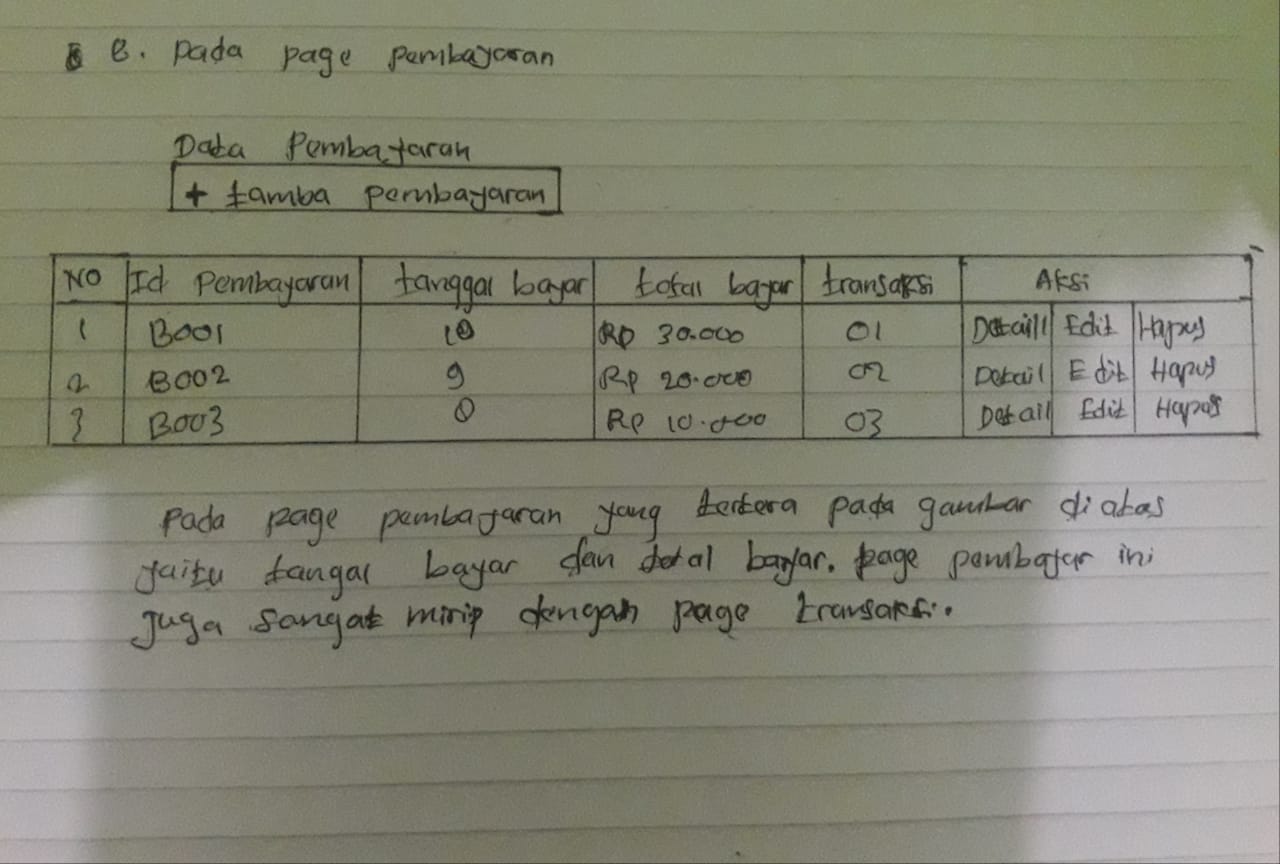 B. pada page pembayaran
Data Pembayaran
+ tamba pembayaran
NO Id Pembayaran tanggal bayar total bayar transaksi Aksi
1 B001 10 Rp 30.000 01 Detaill Edit Hapus
2 B002 9 Rp 20.000 02 Detail Edit Hapus
3 B003 8 Rp 10.000 03 Detail Edit Hapus
Pada page pembayaran yang tertera pada gambar di atas
yaitu tangal bayar dan total bayar. page pembayar ini
juga sangat mirip dengan page transaksi.